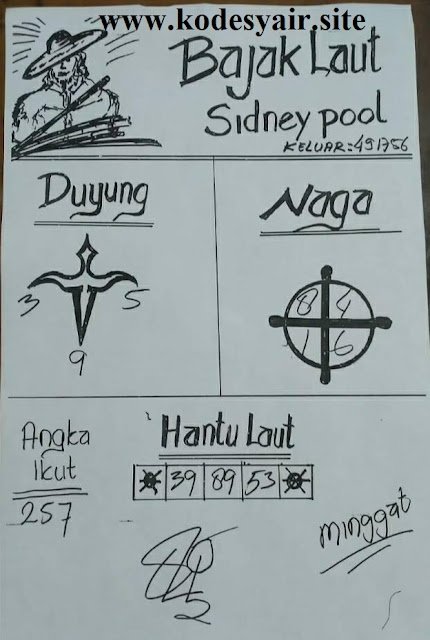 www.kodesyair.site
Bajak Laut
Sidney pool
KELUAR=491756
Duyung
3 5
9
Naga
8 4
1 6
Angka
Ikut
257
Hantu Laut
39 89 53
minggat